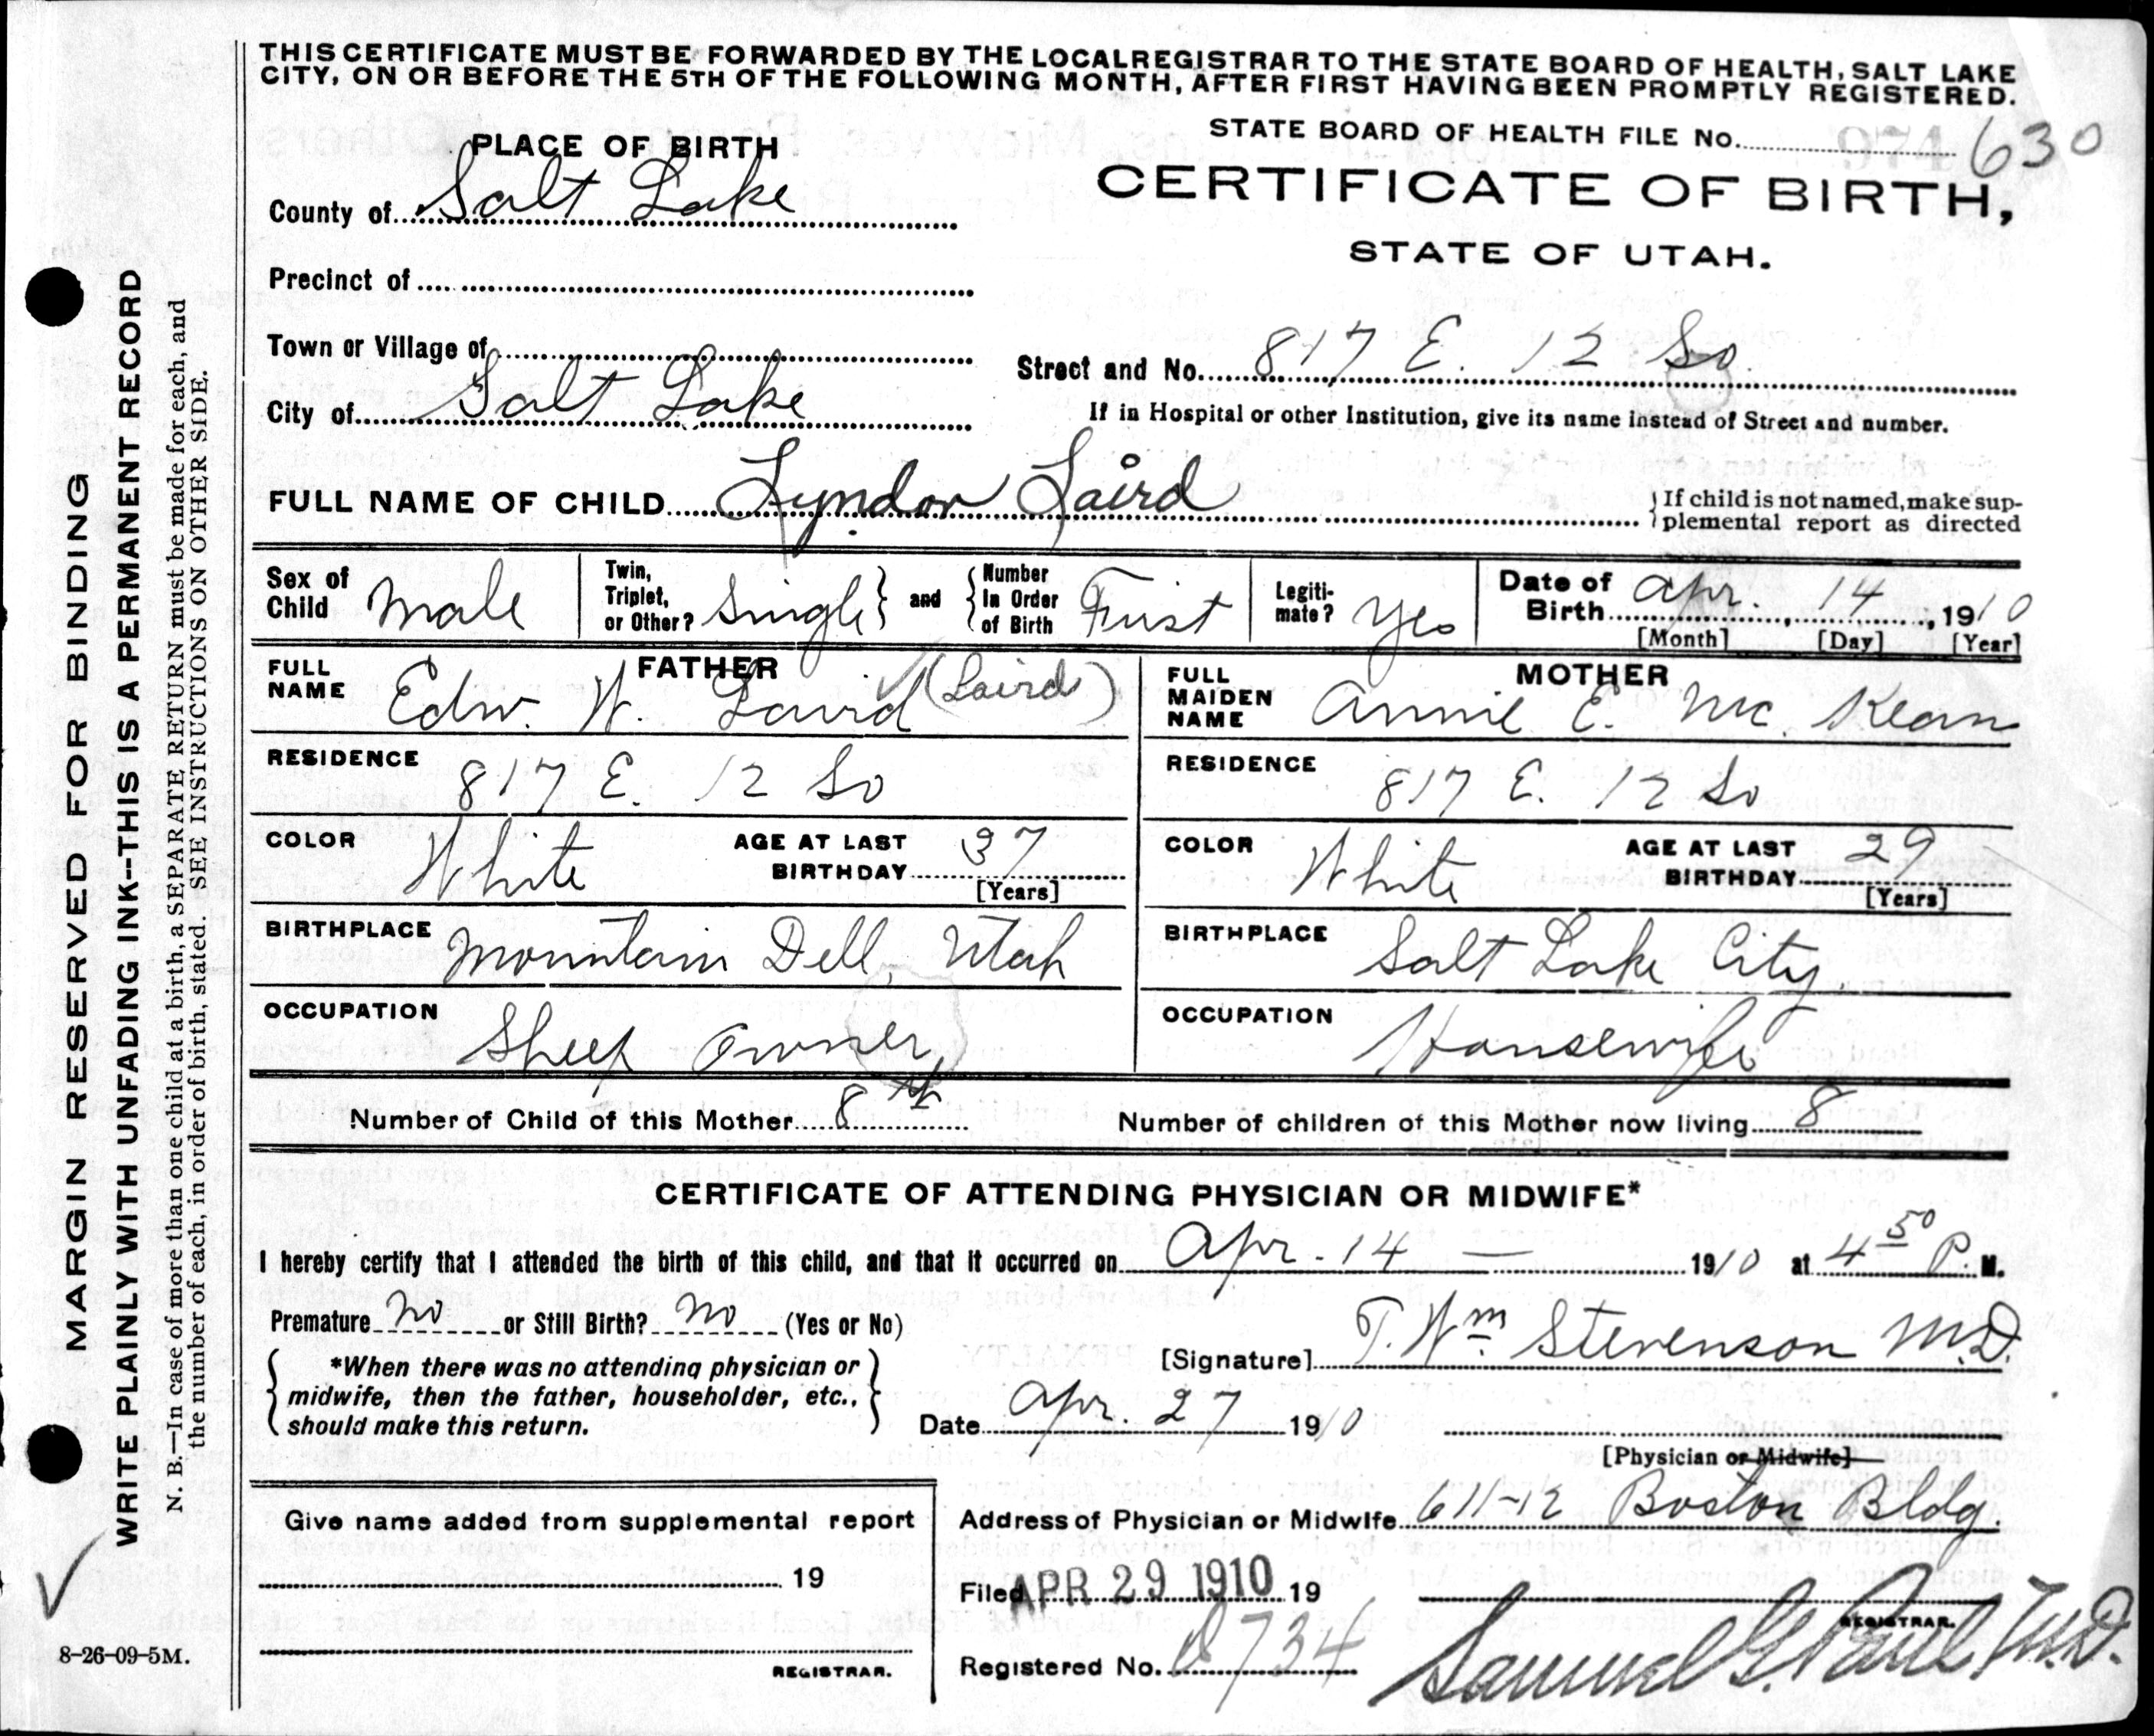 THIS CERTIFICATE MUST BE FORWARDED BY THE LOCAL REGISTRAR TO THE STATE BOARD OF HEALTH, SALT LAKE
CITY, ON OR BEFORE THE 5TH OF THE FOLLOWING MONTH, AFTER FIRST HAVING BEEN PROMPTLY REGISTERED.
STATE BOARD OF HEALTH FILE No. 630
PLACE OF BIRTH
CERTIFICATE OF BIRTH,
STATE OF UTAH.
County of Salt Lake
Precinct of
Town or Village of
City of Salt Lake
Street and No. 817 E. 12 So.
If in Hospital or other Institution, give its name instead of Street and number.
FULL NAME OF CHILD Lyndon Laird
If child is not named, make sup-
plemental report as directed
Sex of Child Male
Twin, Triplet, or Other? Single and Number In Order of Birth First
Legiti-mate? Yes
Date of Birth Apr. 14, 1910
[Month] [Day] [Year]
FATHER
FULL NAME Edw. W. Laird (Laird)
RESIDENCE 817 E. 12 So
COLOR White AGE AT LAST BIRTHDAY 37
[Years]
BIRTHPLACE Mountain Dell, Utah
OCCUPATION Sheep Owner
MOTHER
FULL MAIDEN NAME Annie E. Mc. Kean
RESIDENCE 817 E. 12 So
COLOR White AGE AT LAST BIRTHDAY 29
[Years]
BIRTHPLACE Salt Lake City
OCCUPATION Housewife
Number of Child of this Mother 8th
Number of children of this Mother now living 8
CERTIFICATE OF ATTENDING PHYSICIAN OR MIDWIFE*
I hereby certify that I attended the birth of this child, and that it occurred on Apr. 14 — 1910 at 4 50 P. M.
Premature no or Still Birth? no (Yes or No)
*When there was no attending physician or
midwife, then the father, householder, etc.,
should make this return.
[Signature] T. Wm. Stevenson M.D.
Date Apr. 27 1910
[Physician or Midwife]
Give name added from supplemental report
19
REGISTRAR.
Address of Physician or Midwife 611-12 Boston Bldg.
Filed APR 29 1910 19
REGISTRAR.
Registered No. 734
Samuel G. Paul M.D.
MARGIN RESERVED FOR BINDING
WRITE PLAINLY WITH UNFADING INK--THIS IS A PERMANENT RECORD
N. B.—In case of more than one child at a birth, a SEPARATE RETURN must be made for each, and
the number of each, in order of birth, stated. SEE INSTRUCTIONS ON OTHER SIDE.
8-26-09-5M.